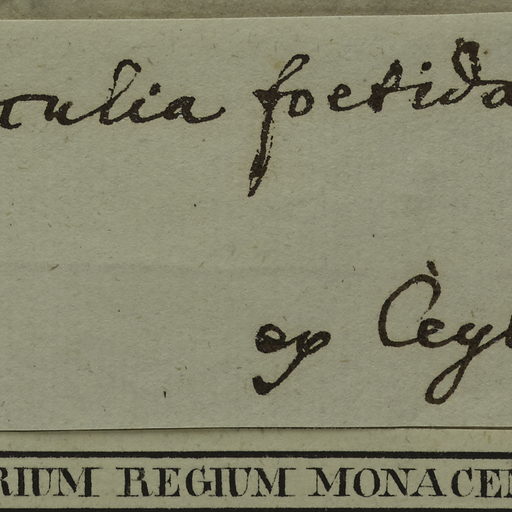 rculia foetida
ex Ceyl
RIUM REGIUM MONACEN